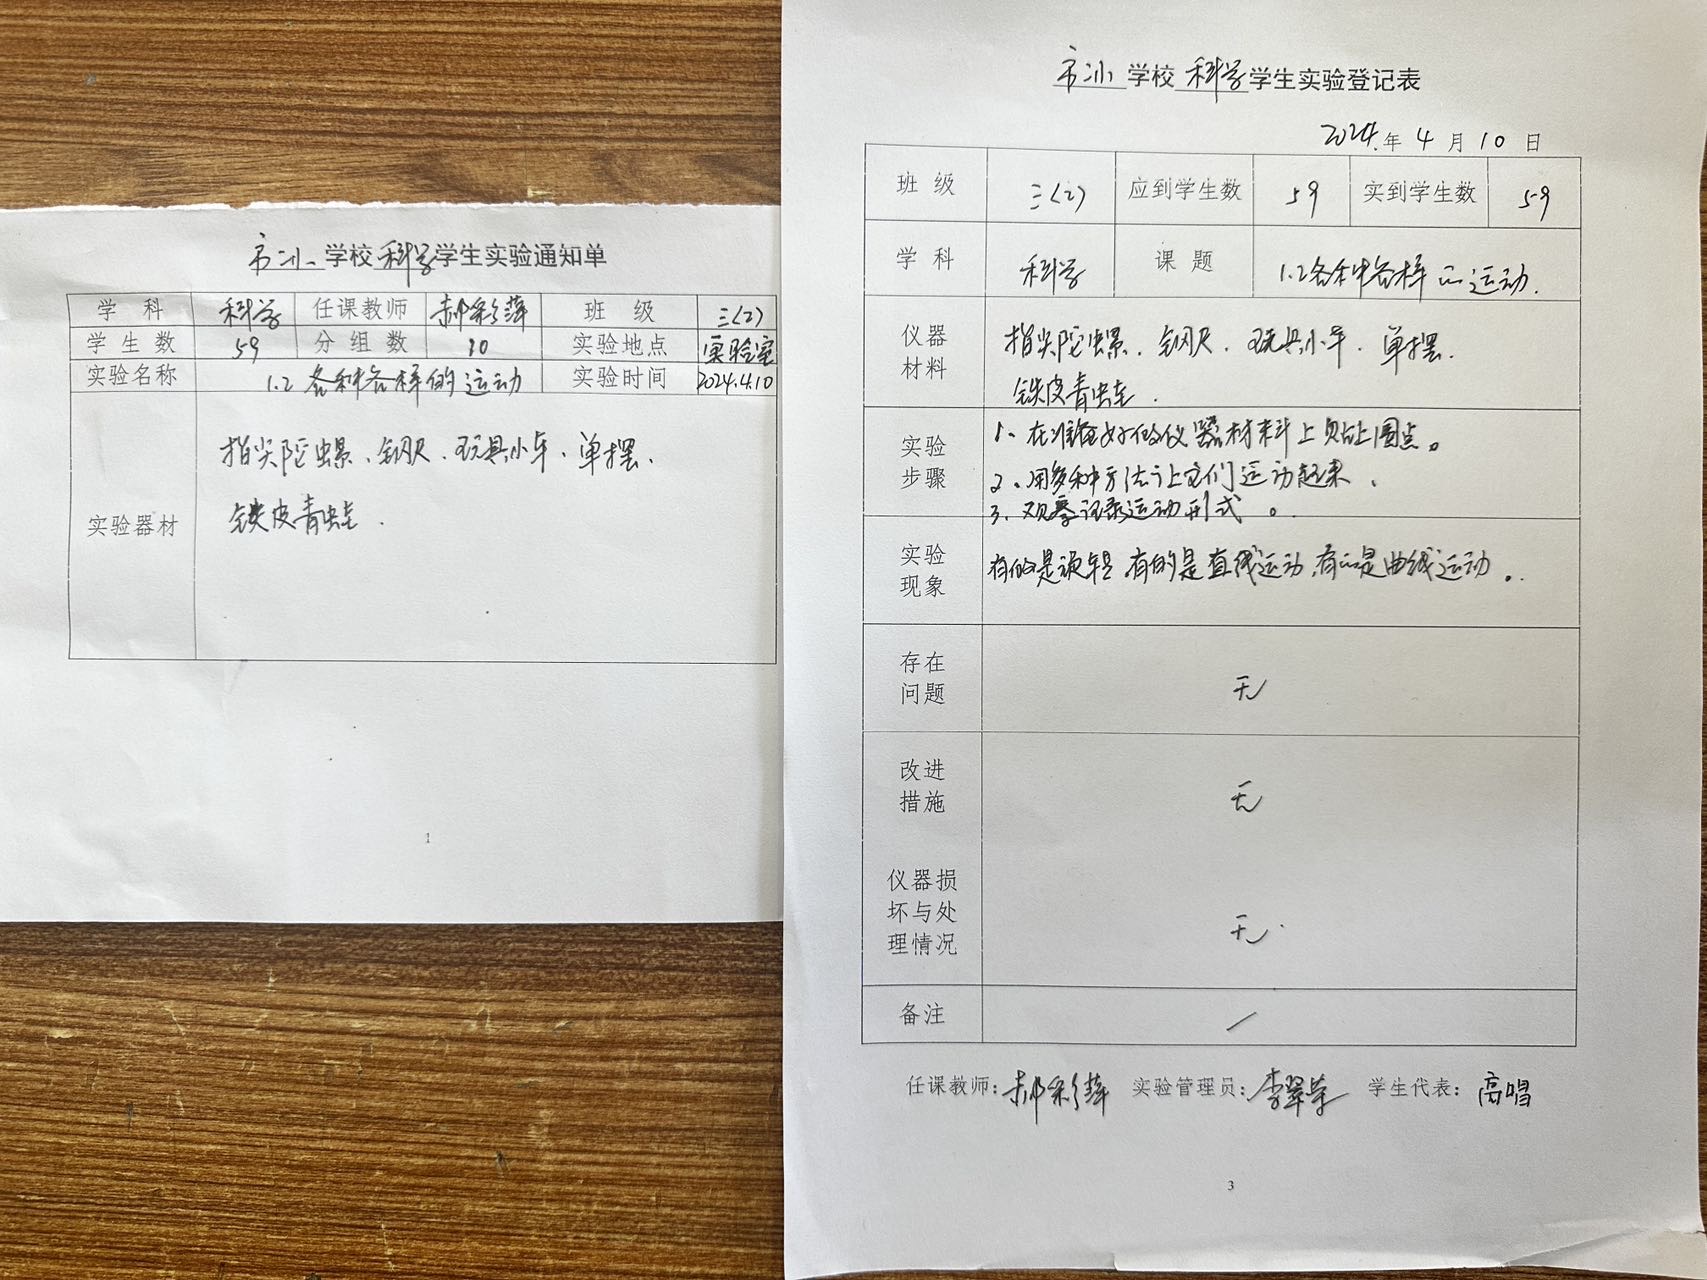 市冰小学校科学学生实验通知单
学科 科学 任课教师 郝彩萍 班级 三(2)
学生数 59 分组数 10 实验地点 实验室
实验名称 1.2 各种各样的运动 实验时间 2024.4.10
实验器材
指尖陀螺、钢尺、玩具小车、单摆、
铁皮青蛙.
1
学校科学学生实验登记表
2024.年 4 月 10 日
班级 三(2) 应到学生数 59 实到学生数 59
学科 科学 课题 1.2各种各样的运动.
仪器材料
指尖陀螺、钢尺、玩具小车、单摆.
铁皮青蛙.
实验步骤
1、在准备好的仪器材料上贴上圆点。
2、用多种方法让它们运动起来.
3、观察记录运动形式。
实验现象
有的是 有的是直线运动,有的是曲线运动。
存在问题 无
改进措施 无
仪器损坏与处理情况 无.
备注 /
任课教师:郝彩萍 实验管理员:李翠荣 学生代表:高唱
3